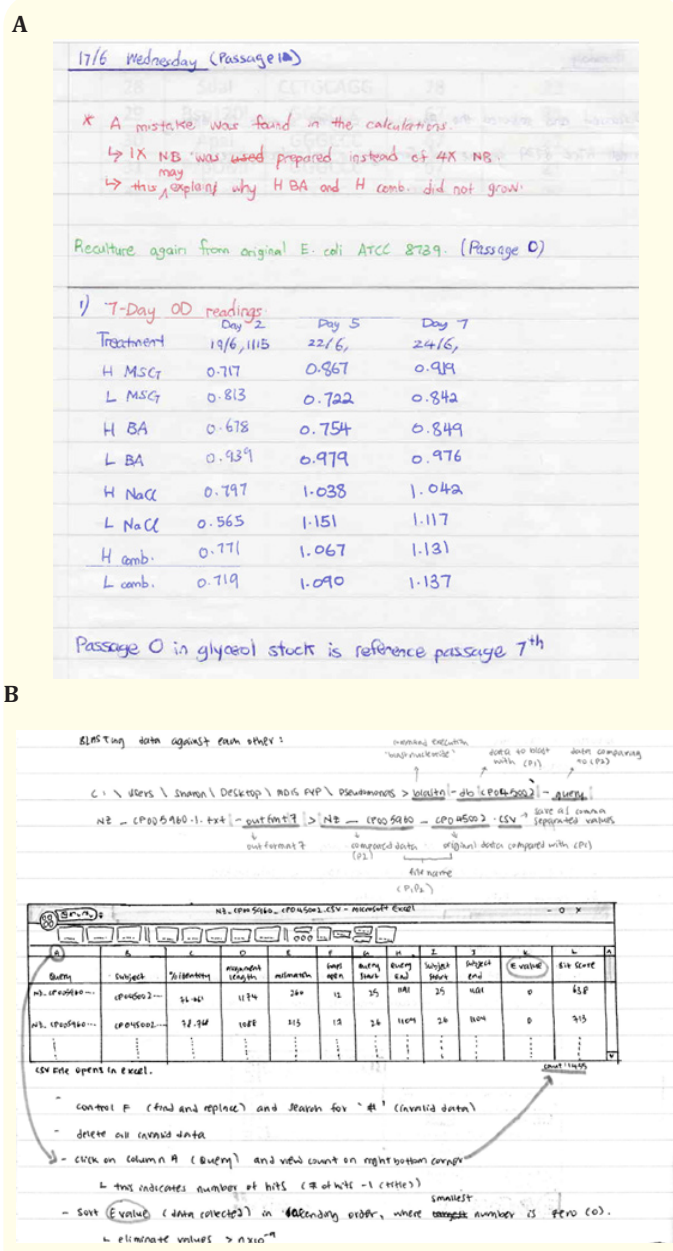 A
17/6 Wednesday (Passage 1)
* A mistake was found in the calculations.
↳ 1X NB was used prepared instead of 4X NB.
↳ this may explain why H BA and H comb. did not grow.
Reculture again from original E. coli ATCC 8739. (Passage 0)
1) 7-Day OD readings
Day 2 Day 5 Day 7
Treatment 19/6, 1115 22/6, 24/6,
H MSG 0.717 0.867 0.919
L MSG 0.813 0.722 0.842
H BA 0.678 0.754 0.849
L BA 0.939 0.979 0.976
H NaCl 0.797 1.038 1.042
L NaCl 0.565 1.151 1.117
H comb. 0.771 1.067 1.131
L comb. 0.719 1.090 1.137
Passage 0 in glycerol stock is reference passage 7th
B
BLASTing data against each other :
command execution data to blast data comparing
with (P1) to (P2)
C : \ Users \ Sharon \ Desktop \ MDIS FYP \ Pseudomonas > blastn -db CP045002 -query
NZ_CP005960.1.txt -outfmt 7 > NZ_CP005960_CP045002.CSV → save as comma separated values
outformat 7 compared data (P2) original data compared with (P1)
file name
(P1P2)
NZ_CP005960_CP045002.CSV - Microsoft Excel - o x
A B C D E F G H I J K L
Query Subject % identity Alignment length mismatch gaps open Query start Query end Subject start Subject end E value Bit score
NZ_CP005960... CP045002... 1174 260 12 25 25 0 638
NZ_CP005960... CP045002... 78.768 1088 213 12 26 1104 26 1104 0 713
CSV file opens in excel. count: 1455
- control F (find and replace) and search for '#' (invalid data)
- delete all invalid data
- click on column A (Query) and view count on right bottom corner
↳ this indicates number of hits (# of hits -1 (title))
- Sort E value (data collected) in ascending order, where smallest number is zero (0).
↳ eliminate values >